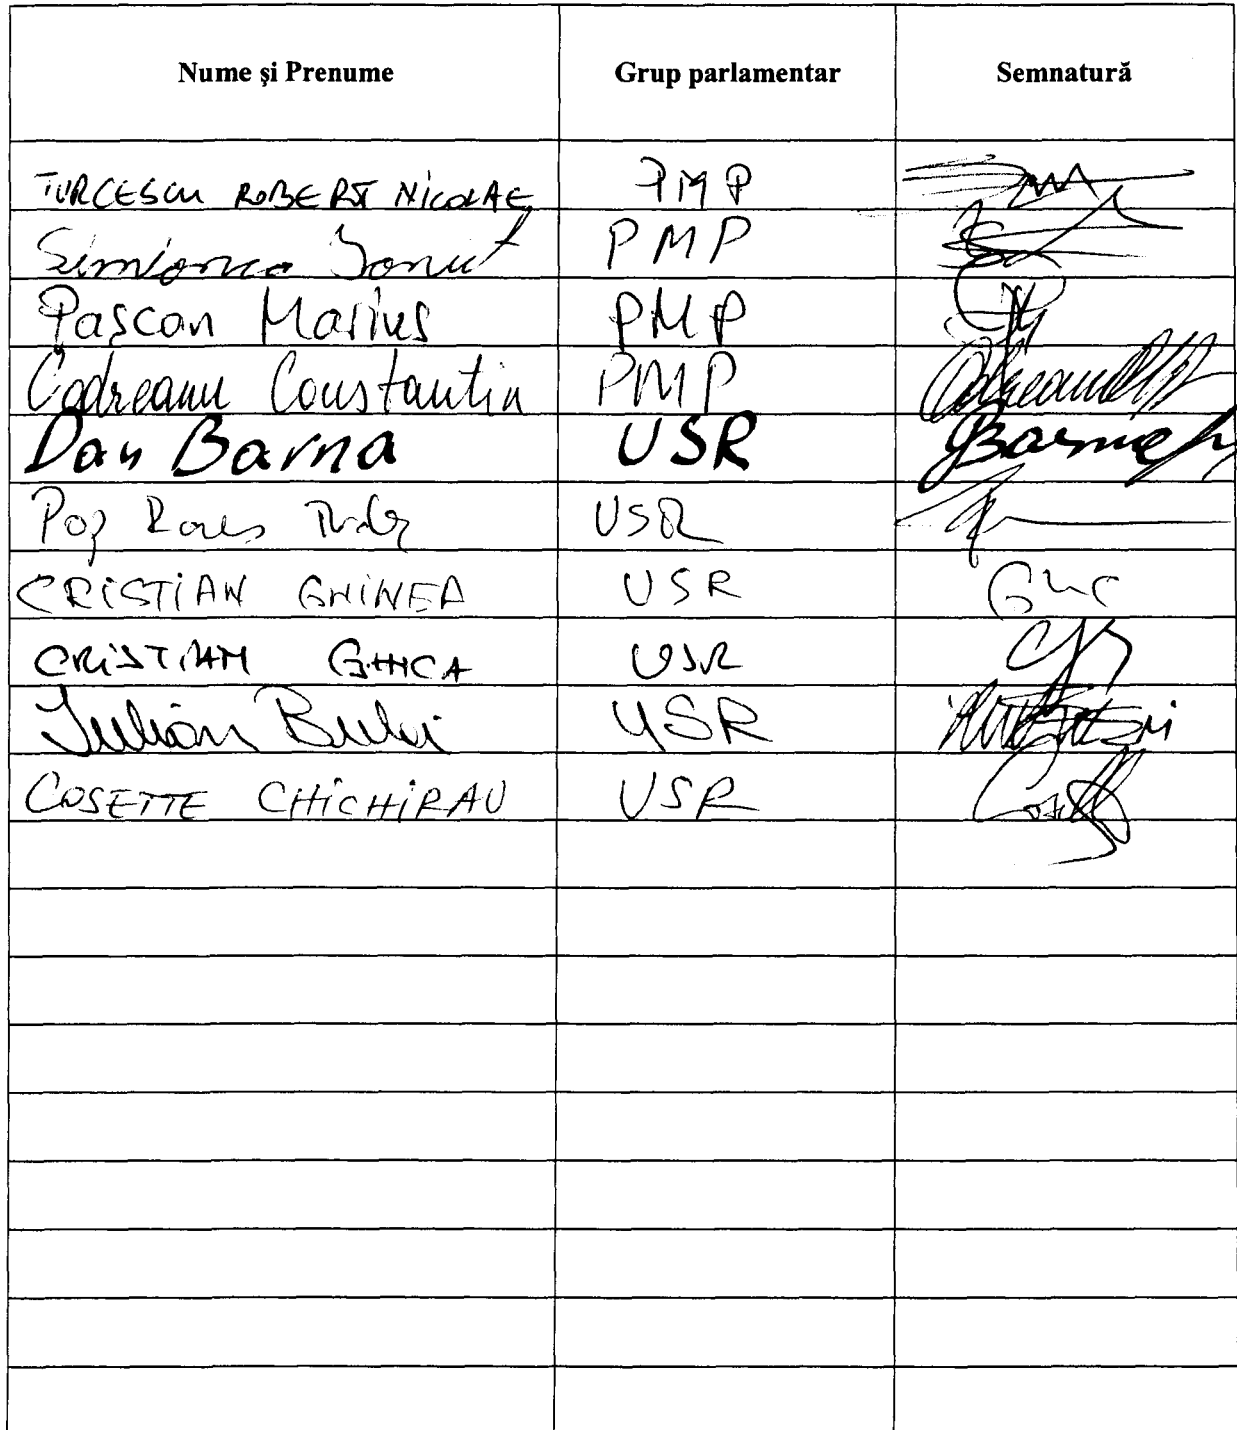 Nume și Prenume Grup parlamentar Semnatură
TURCESCU ROBERT NICOLAE PMP
Simionca Ionuț PMP
Pașcan Marius PMP
Codreanu Constantin PMP Codreanu
Dan Barna USR Barna
Pop Rareș Tudor USR
CRISTIAN GHINEA USR
CRISTIAN GHICA USR
Iulian Bulai USR
COSETTE CHICHIRAU USR